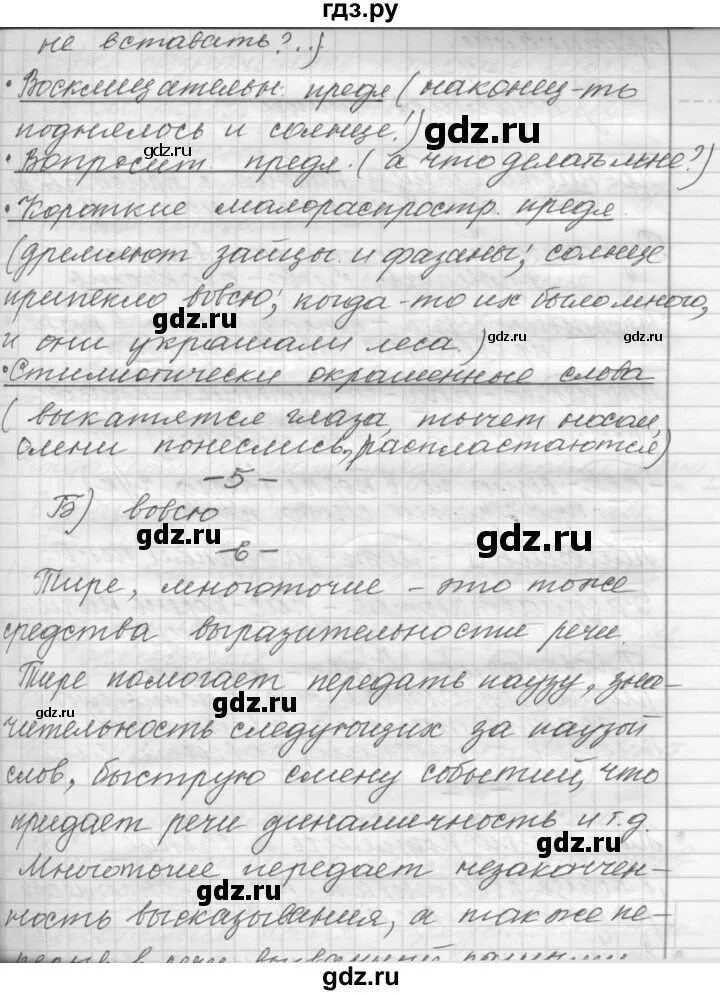 гдз.ру
не вставать?..)
• Восклицательн. предл (наконец-то
поднялось и солнце!)
gdz.ru
gdz.ru
• Вопросит. предл. (а что делать мне?)
• Короткие малораспростр. предл.
(дремлют зайцы и фазаны; солнце
припекло вовсю; когда-то их было много,
gdz.ru
и они украшали леса.)
gdz.ru
gdz.ru
• Стилистически окрашенные слова
(выкатятся глаза, тычет носом,
олени понеслись, распластаются)
-5-
Б) вовсю
gdz.ru
gdz.ru
-6-
Тире, многоточие - это тоже
средства выразительности речи.
Тире помогает передать паузу, зна-
gdz.ru
gdz.ru
gdz.ru
чительность следующих за паузой
слов, быструю смену событий, что
придает речи динамичность и т.д.
gdz.ru
Многоточие передает незакончен-
gdz.ru
ность высказывания, а также пе-
gdz.ru
gdz.ru
gdz.ru